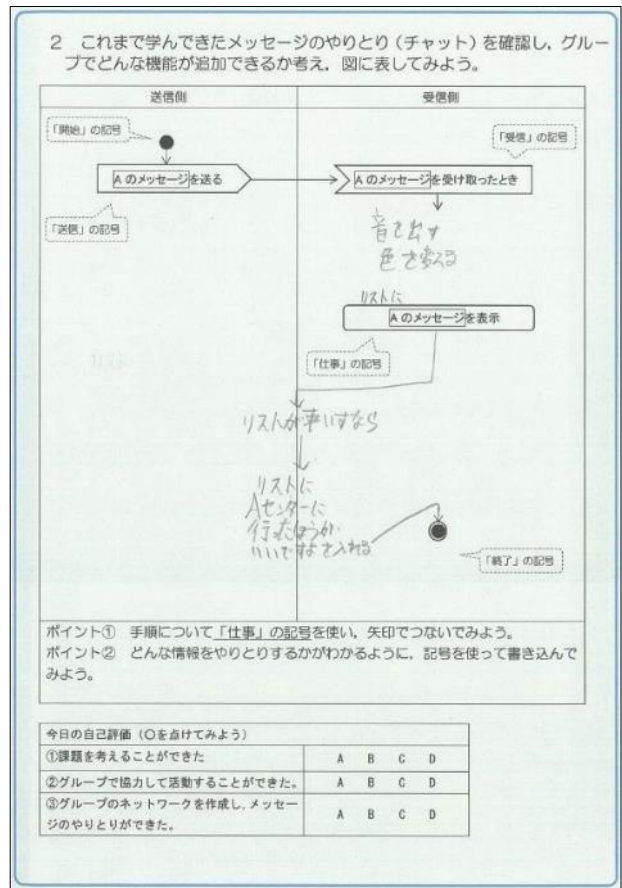 2　これまで学んできたメッセージのやりとり（チャット）を確認し，グルー
プでどんな機能が追加できるか考え，図に表してみよう。
送信側
受信側
「開始」の記号
「受信」の記号
Aのメッセージを送る
Aのメッセージを受け取ったとき
「送信」の記号
音を出す
色を変える
リストに
Aのメッセージを表示
「仕事」の記号
リスト
リストが車いすなら
リストに
Aセンターに
行ったほうが
いいですよを入れる
「終了」の記号
ポイント①　手順について「仕事」の記号を使い，矢印でつないでみよう。
ポイント②　どんな情報をやりとりするかがわかるように，記号を使って書き込んで
みよう。
今日の自己評価（○を点けてみよう）
①課題を考えることができた　A　B　C　D
②グループで協力して活動することができた。　A　B　C　D
③グループのネットワークを作成し，メッセー
ジのやりとりができた。　A　B　C　D